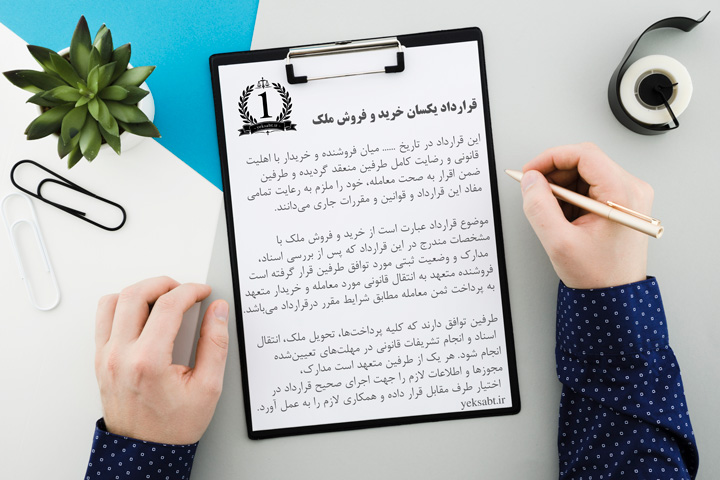 1
yeksabt.ir
قرارداد یکسان خرید و فروش ملک
این قرارداد در تاریخ ...... میان فروشنده و خریدار با اهلیت
قانونی و رضایت کامل طرفین منعقد گردیده و طرفین
ضمن اقرار به صحت معامله، خود را ملزم به رعایت تمامی
مفاد این قرارداد و قوانین و مقررات جاری می‌دانند.
موضوع قرارداد عبارت است از خرید و فروش ملک با
مشخصات مندرج در این قرارداد که پس از بررسی اسناد،
مدارک و وضعیت ثبتی مورد توافق طرفین قرار گرفته است
فروشنده متعهد به انتقال قانونی مورد معامله و خریدار متعهد
به پرداخت ثمن معامله مطابق شرایط مقرر درقرارداد می‌باشد.
طرفین توافق دارند که کلیه پرداخت‌ها، تحویل ملک، انتقال
اسناد و انجام تشریفات قانونی در مهلت‌های تعیین‌شده
انجام شود. هر یک از طرفین متعهد است مدارک،
مجوزها و اطلاعات لازم را جهت اجرای صحیح قرارداد در
اختیار طرف مقابل قرار داده و همکاری لازم را به عمل آورد.
yeksabt.ir